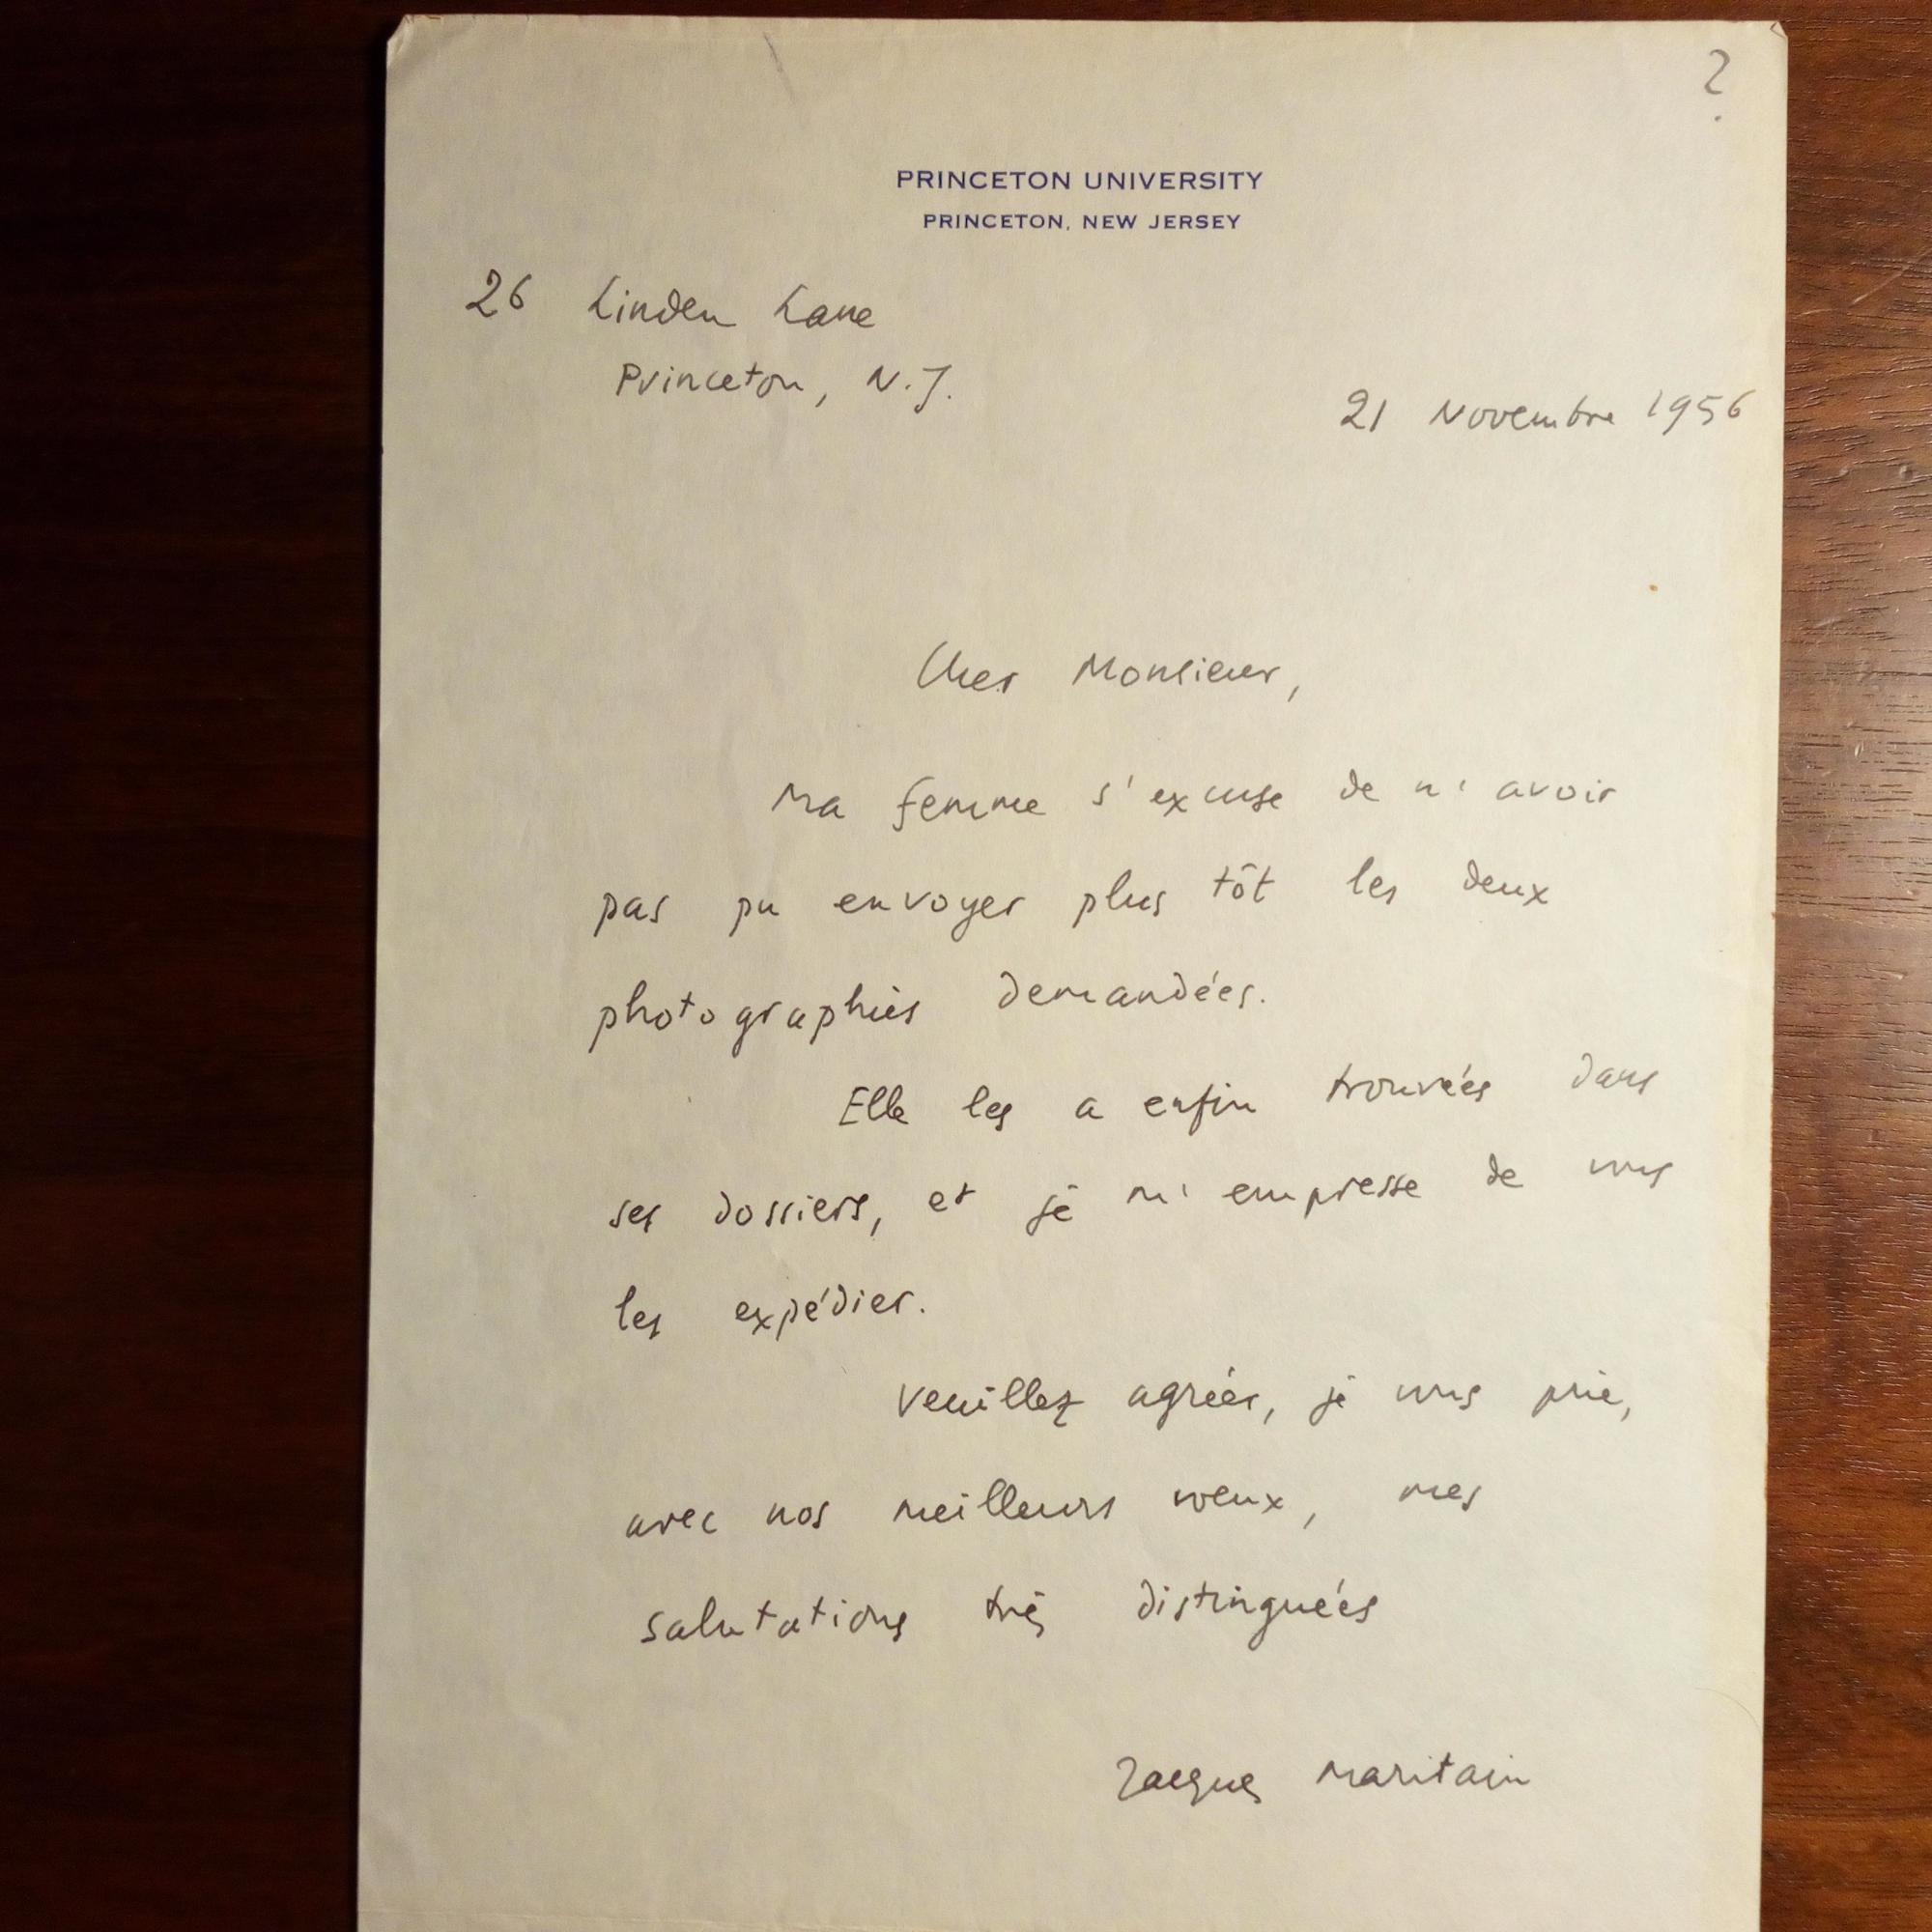 ?
PRINCETON UNIVERSITY
PRINCETON, NEW JERSEY
26 Linden Lane
Princeton, N.J.
21 Novembre 1956
Cher Monsieur,
Ma femme s'excuse de n'avoir
pas pu envoyer plus tôt les deux
photographies demandées.
Elle les a enfin trouvées dans
ses dossiers, et je m'empresse de vous
les expédier.
Veuillez agréer, je vous prie,
avec nos meilleurs voeux, mes
salutations très distinguées
Jacques Maritain